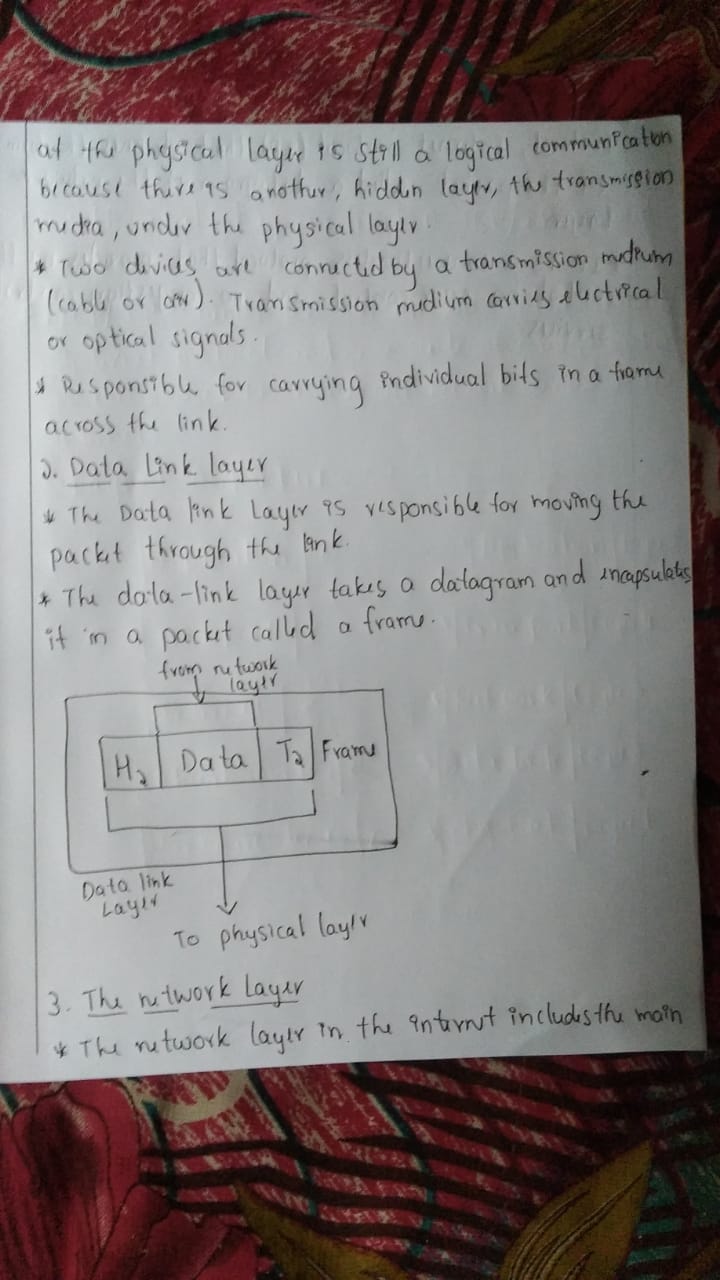 at the physical layer is still a logical communication
because there is another, hidden layer, the transmission
media, under the physical layer.
* Two devices are connected by a transmission medium
(cable or air). Transmission medium carries electrical
or optical signals.
* Responsible for carrying individual bits in a frame
across the link.
2. Data Link layer
* The Data link Layer is responsible for moving the
packet through the link.
* The data-link layer takes a datagram and encapsulates
it in a packet called a frame.
from network
layer
H2 Data T2 Frame
Data link
Layer
To physical layer
3. The network Layer
* The network layer in the internet includes the main